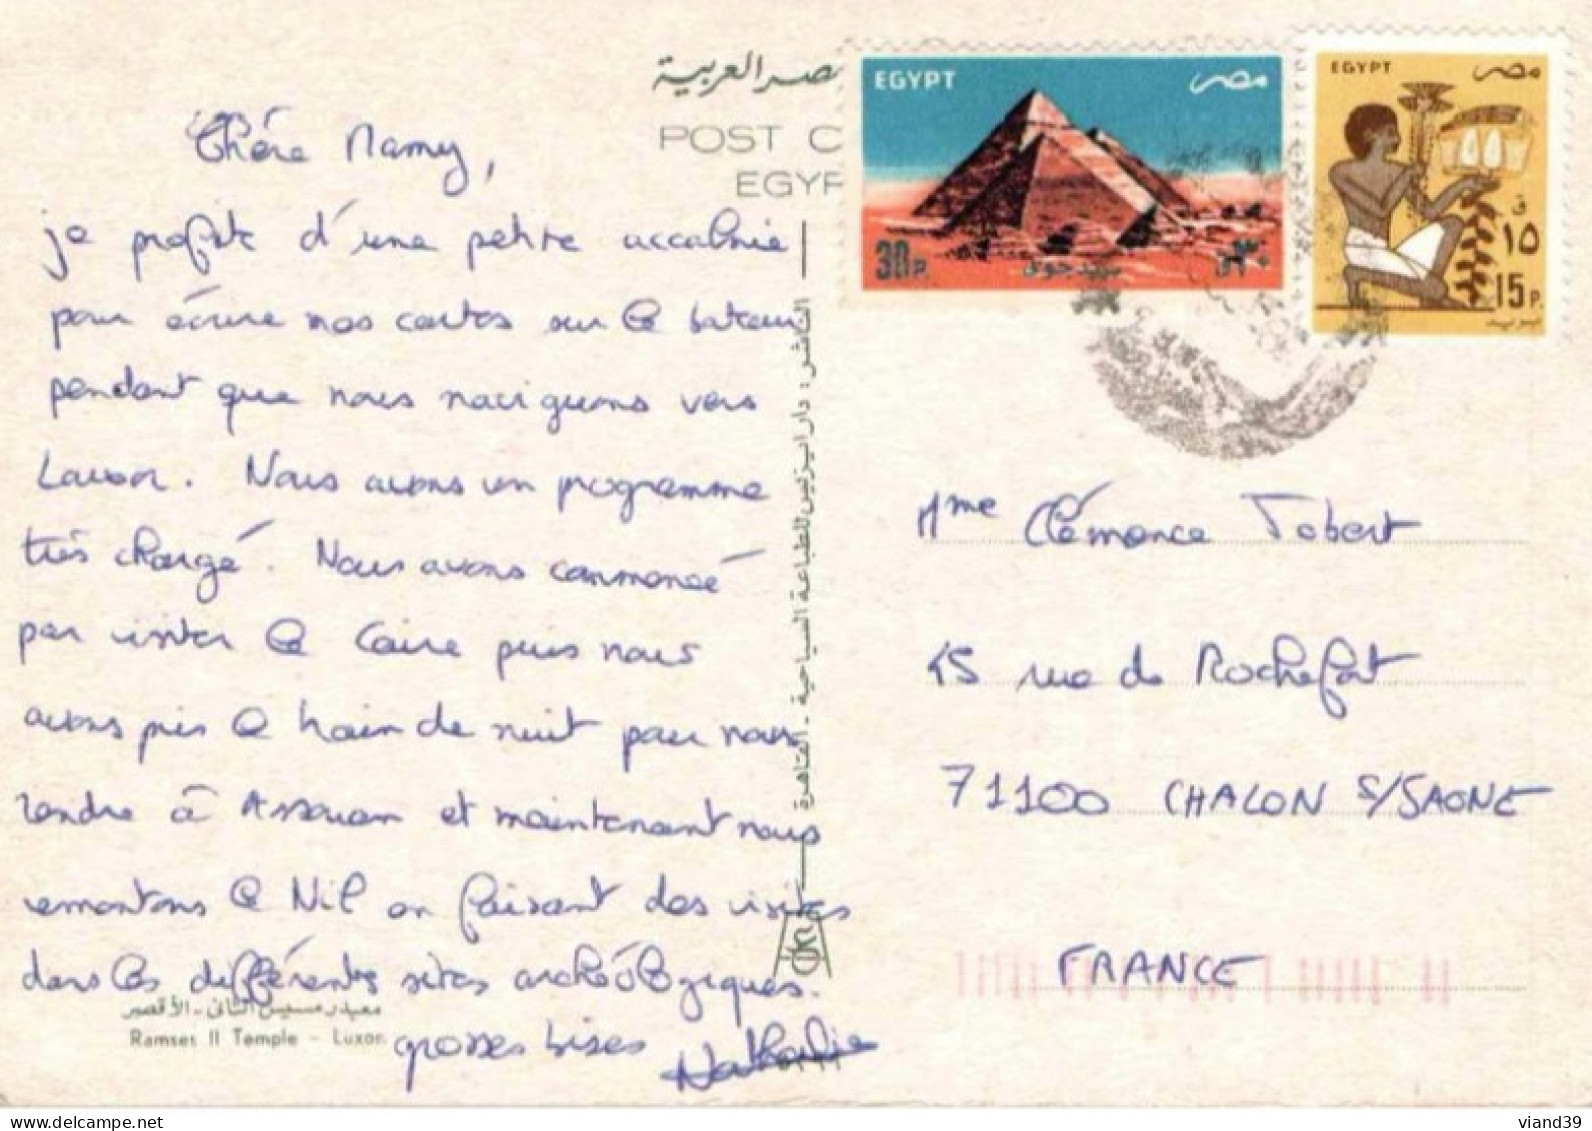 مصر العربية
POST C
EGYP
EGYPT
مصر
30 P.
٣٠
بريد جوى
EGYPT
مصر
ق
١٥
15 P.
بريد
Chère Mamy,
je profite d'une petite accalmie
pour écrire nos cartes sur le bateau
pendant que nous naviguons vers
Louxor. Nous avons un programme
très chargé. Nous avons commencé
par visiter le Caire puis nous
avons pris le train de nuit pour nous
rendre à Assouan et maintenant nous
remontons le Nil en faisant des visites
dans les différents sites archéologiques.
grosses bises Nathalie
معبد رمسيس الثانى - الأقصر
Ramses II Temple - Luxor
الناشر : دار ايزيس للطباعة السياحية - القاهرة
Mme Clémence Jobert
45 rue de Rochefort
71100 CHALON S/SAONE
FRANCE
viand39